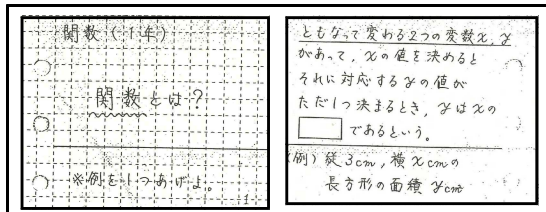 関数(1年)
関数とは?
※例を1つあげよ。
1
ともなって変わる2つの変数x, y
があって, xの値を決めると
それに対応するyの値が
ただ1つ決まるとき, yはxの
であるという。
(例) 縦3cm, 横xcmの
長方形の面積ycm